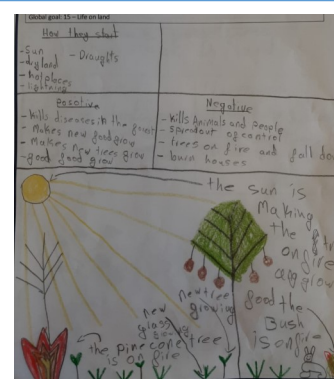 Global goal: 15 – Life on land
How they start
-sun
- Draughts
-dryland
-hotplaces
-lightning
Posotive
- kills diseases in the
- Makes new food grow
- Makes new trees grow
-good food grow
Negative
- kills Animals and people
- spreadout of control
- trees on fire and fall do
- burn houses
the sun is
Making
the
on fire
good the
Bush
is on fire
new tree
growing
new
grass
tree
the pinecone
is on fire